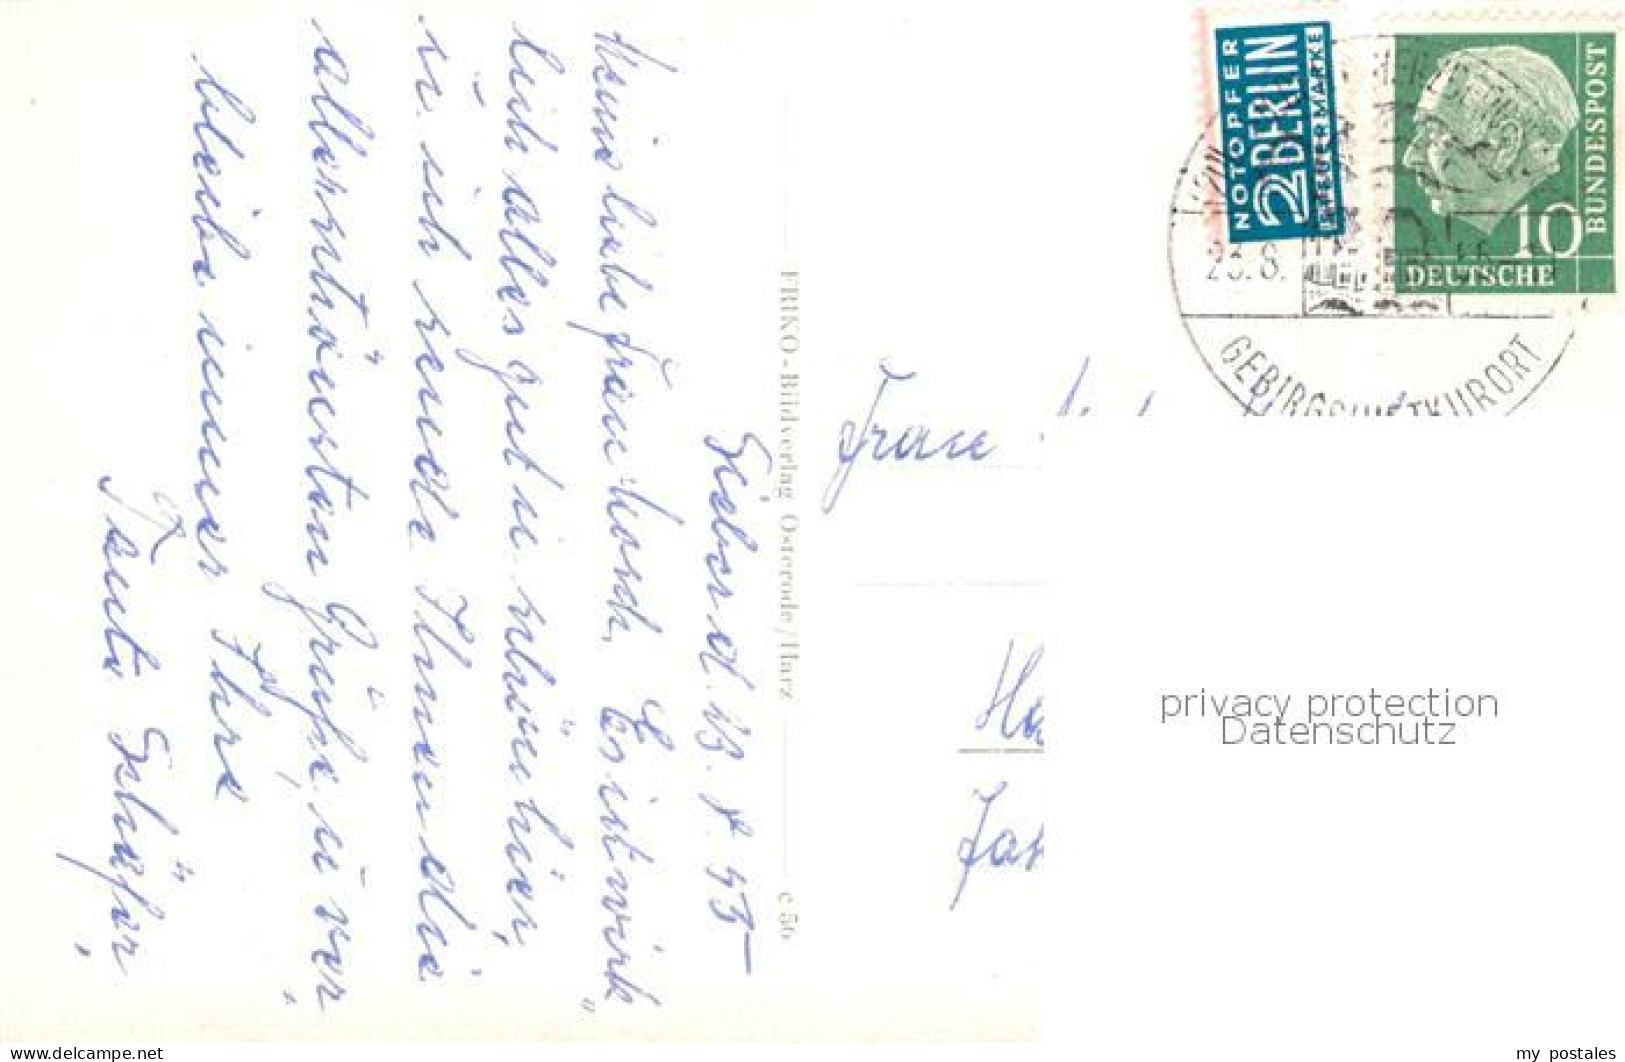 Sieber d. 23. 8. 55
Meine liebe Frau
lich alles gut u. schön hier,
u. ich sende Ihnen die
allerschönsten Grüße u. ver„
bleibe immer Ihre
Tante Schäfer,
FRIKO - Bildverlag Osterode/Harz
c 56
NOTOPFER
2 BERLIN
STEUERMARKE
DEUTSCHE
BUNDESPOST
10
23. 8.
GEBIRGSLUFTKURORT
Frau
privacy protection
Datenschutz
www.delcampe.net
my_postales